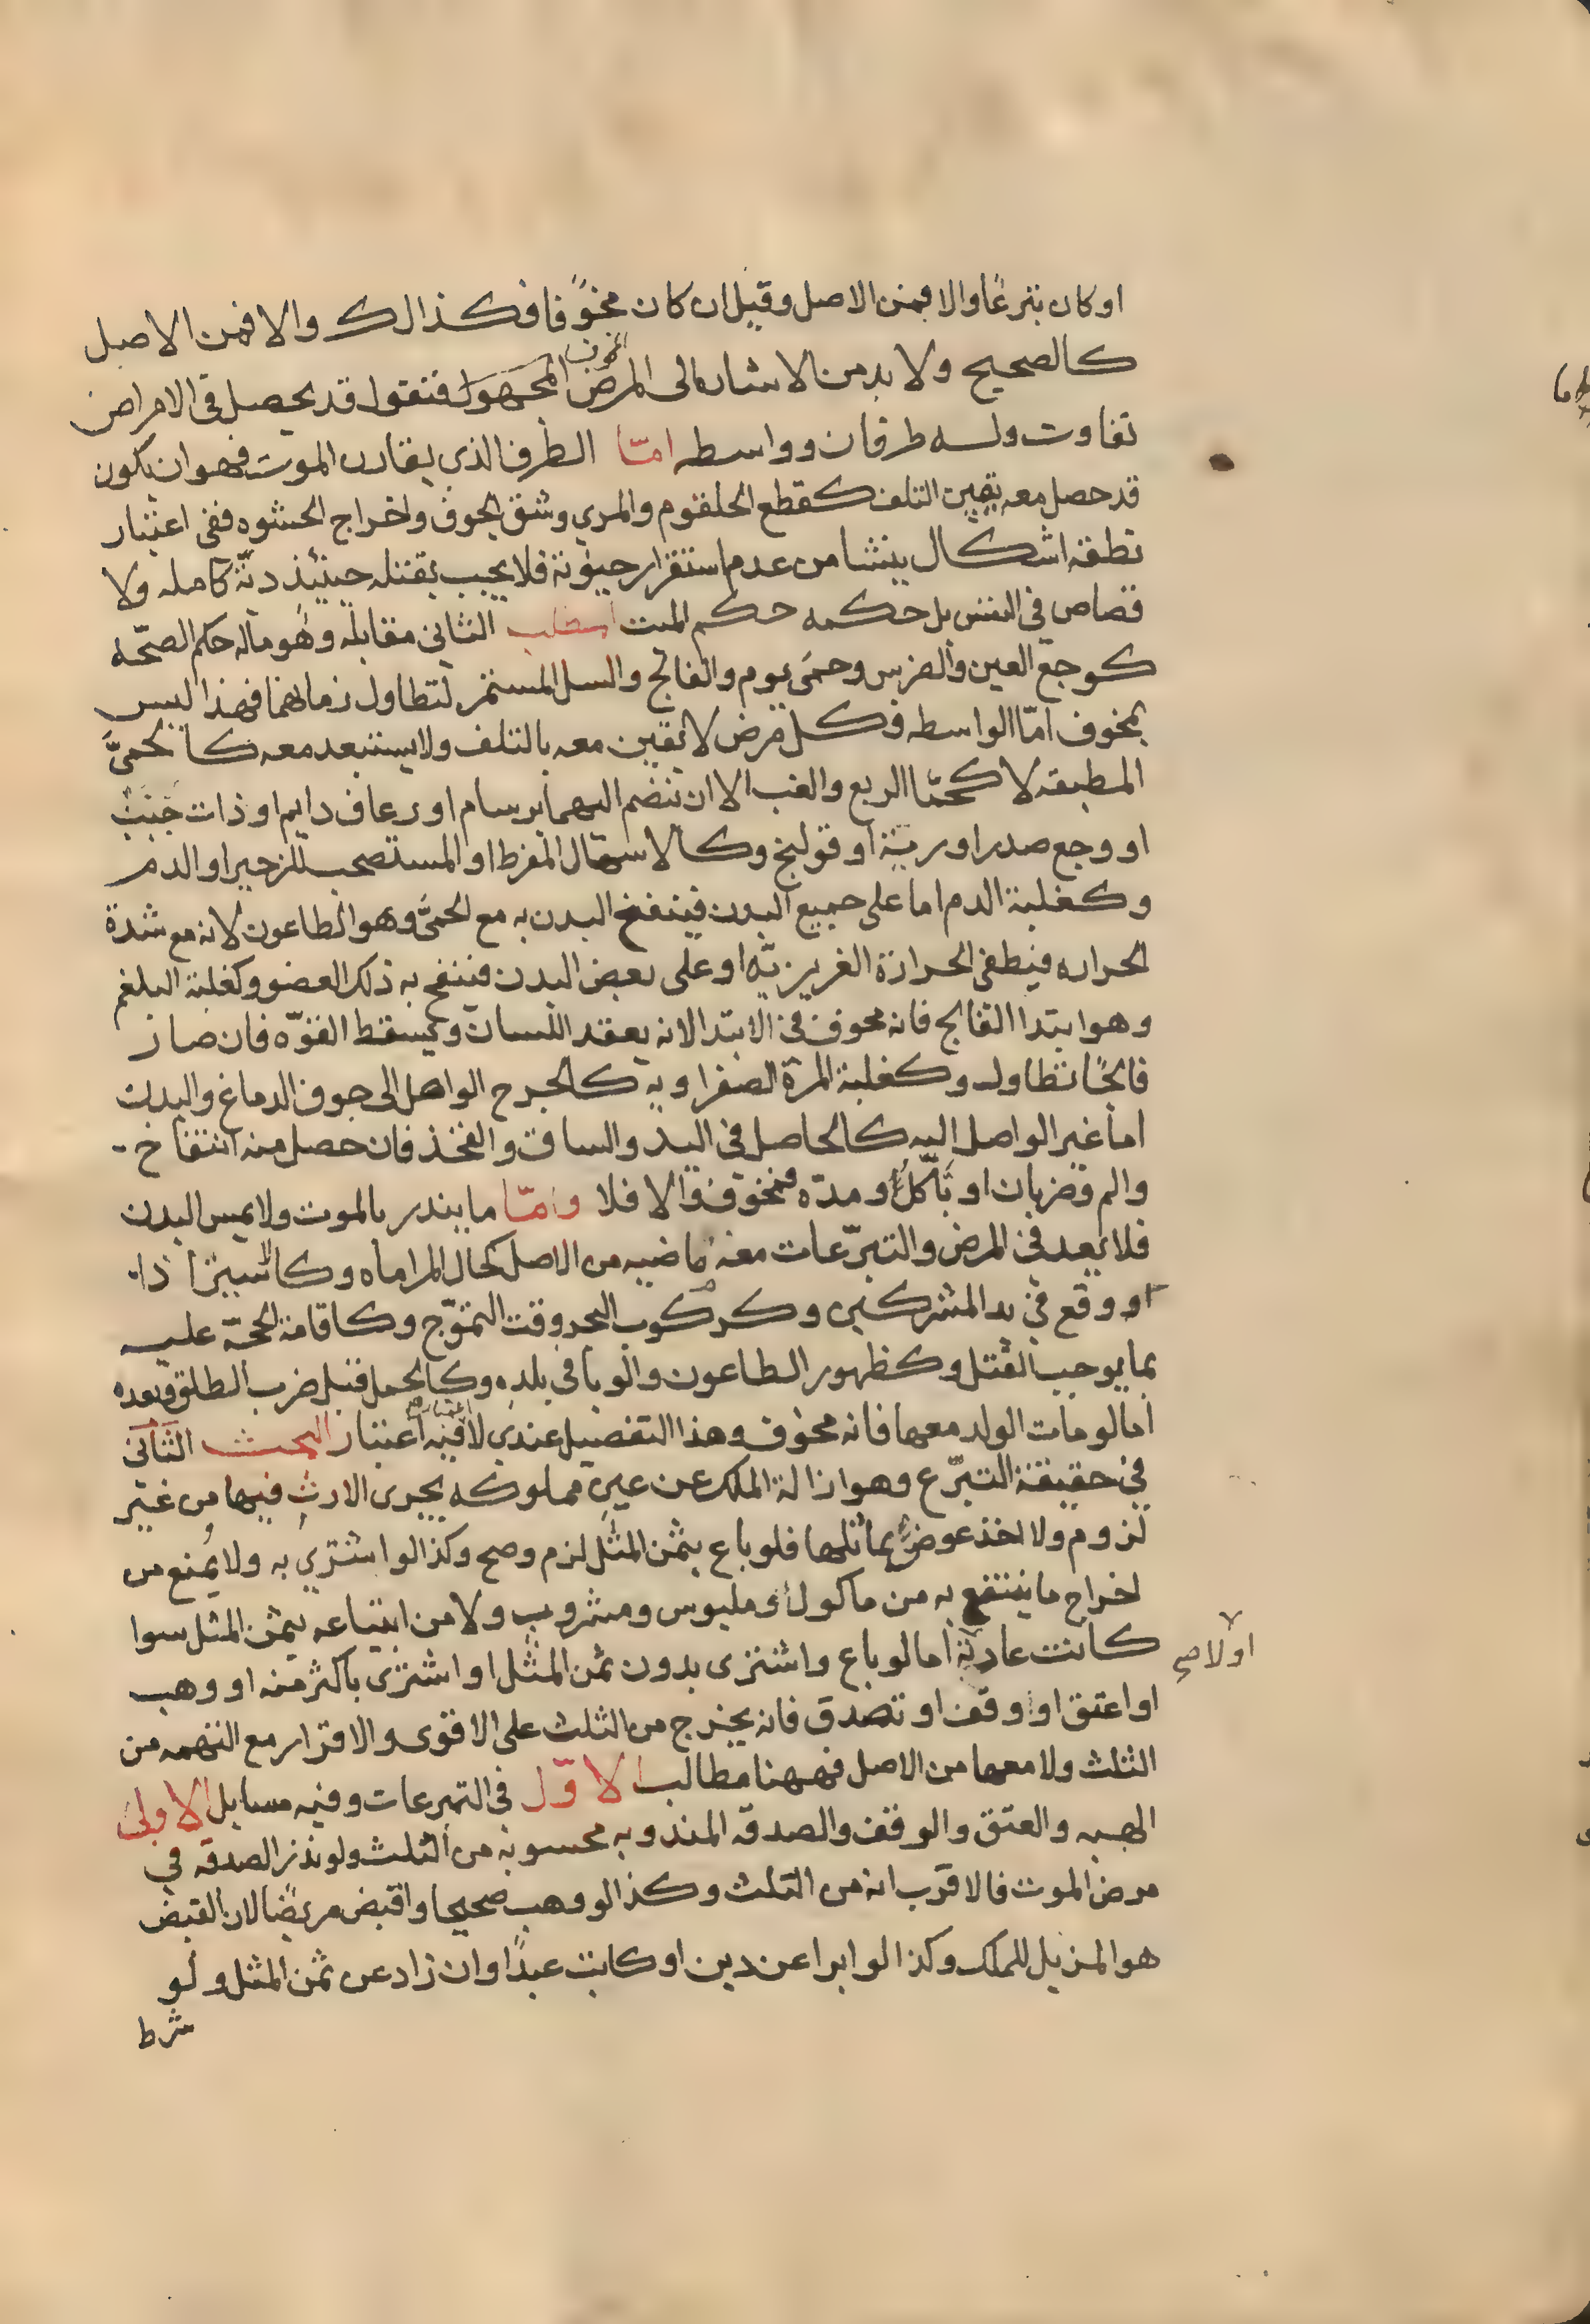 او كان تبرعا والا فمن الاصل وقيل ان كان مخوفا فكذالك والا فمن الاصل
كالصحيح ولا بد من الاشاره الى المرض المخوف فنقول قد يحصل في الامراض
تفاوت وله طرفان وواسطه امّا الطرف الذي يقارب الموت فهو ان يكون
قد حصل معه تيقين التلف كقطع الحلقوم والمري وشق الجوف واخراج الحشوه ففي اعتبار
نطقه اشكال ينشا من عدم استقرار حيوٰته فلا يجب بقتله حينئذ ديّة كامله ولا
قصاص في النفس بل حكمه حكم الميت الثاني مقابله وهو ماله حكم الصحّه
كوجع العين والضرس وحمّى يوم والفالج والسل المستمر لتطاول زمانهما فهذا ليس
بمخوف امّا الواسطه فكل مرض لا تيقين معه بالتلف ولا يستبعد معه كالحمىّ
المطبقه لا كحمّا الربع والغب الا ان تنضم اليهما برسام او رعاف دايم او ذات جنب
او وجع صدر او ريّة او قولنج وكالاسهال المفرط او المستصحب للزحير او الدم
وكغلبة الدم اما على جميع البدن فينتفخ البدن به مع الحمىّ وهو الطاعون لانه مع شدة
الحراره فيطفى الحرارة الغريزيّه او على بعض البدن فينتفخ به ذلك العضو وكغلبة البلغم
وهو ابتدا الفالج فانه مخوف في الابتدا لانه يعقد اللسان ويسقط القوّه فان صار
فالجًا تطاول وكغلبة المرة الصفراويه كالجرح الواصل الى جوف الدماغ والبدن
اما غير الواصل اليه كالحاصل في اليد والساق والفخذ فان حصل منه انتفاخ
والم وضربان او تأكّل او مدّه فمخوف والا فلا وامّا ما ينذر بالموت ولا يمس البدن
فلا يعد في المرض والتبرّعات معه ماضيه من الاصل كحال المراماه وكالاسير اذا
او وقع في يد المشركين وكركوب البحر وقت التموّج وكاقامة الحجّة عليه
بما يوجب القتل وكظهور الطاعون والوبا في بلده وكالحمل قبل ضرب الطلق وبعده
اما لو مات الولد معها فانه مخوف وهذا التفصيل عندي لا فيه اعتبار البحث الثاني
في حقيقة التبرّع وهو ازالة الملك عن عين مملوكه يجرى الارث فيها من غير
لزوم ولا اخذ عوض يماثلها فلو باع بثمن المثل لزم وصح وكذا لو اشترى به ولا يُمنع من
اخراج ما ينتفع به من ماكول وملبوس ومشروب ولا من ابتياعه بثمن المثل سوا
كانت عاديّة اما لو باع واشترى بدون ثمن المثل او اشترى باكثر منه او وهب
اولا صح
او اعتق او وقف او تصدق فانه يخرج من الثلث على الاقوى والاقرار مع التهمه من
الثلث ولا معها من الاصل فههنا مطالب الاوّل في التبرعات وفيه مسايل الاولى
الهبه والعتق والوقف والصدقه المندوبه محسوبه من الثلث ولو نذر الصدقه في
مرض الموت فالاقرب انه من الثلث وكذا لو وهب صحيحا واقبض مريضًا لان القبض
هو المزيل للملك وكذا لو ابرا عن دين او كاتب عبدًا وان زاد عن ثمن المثل ولو
شرط